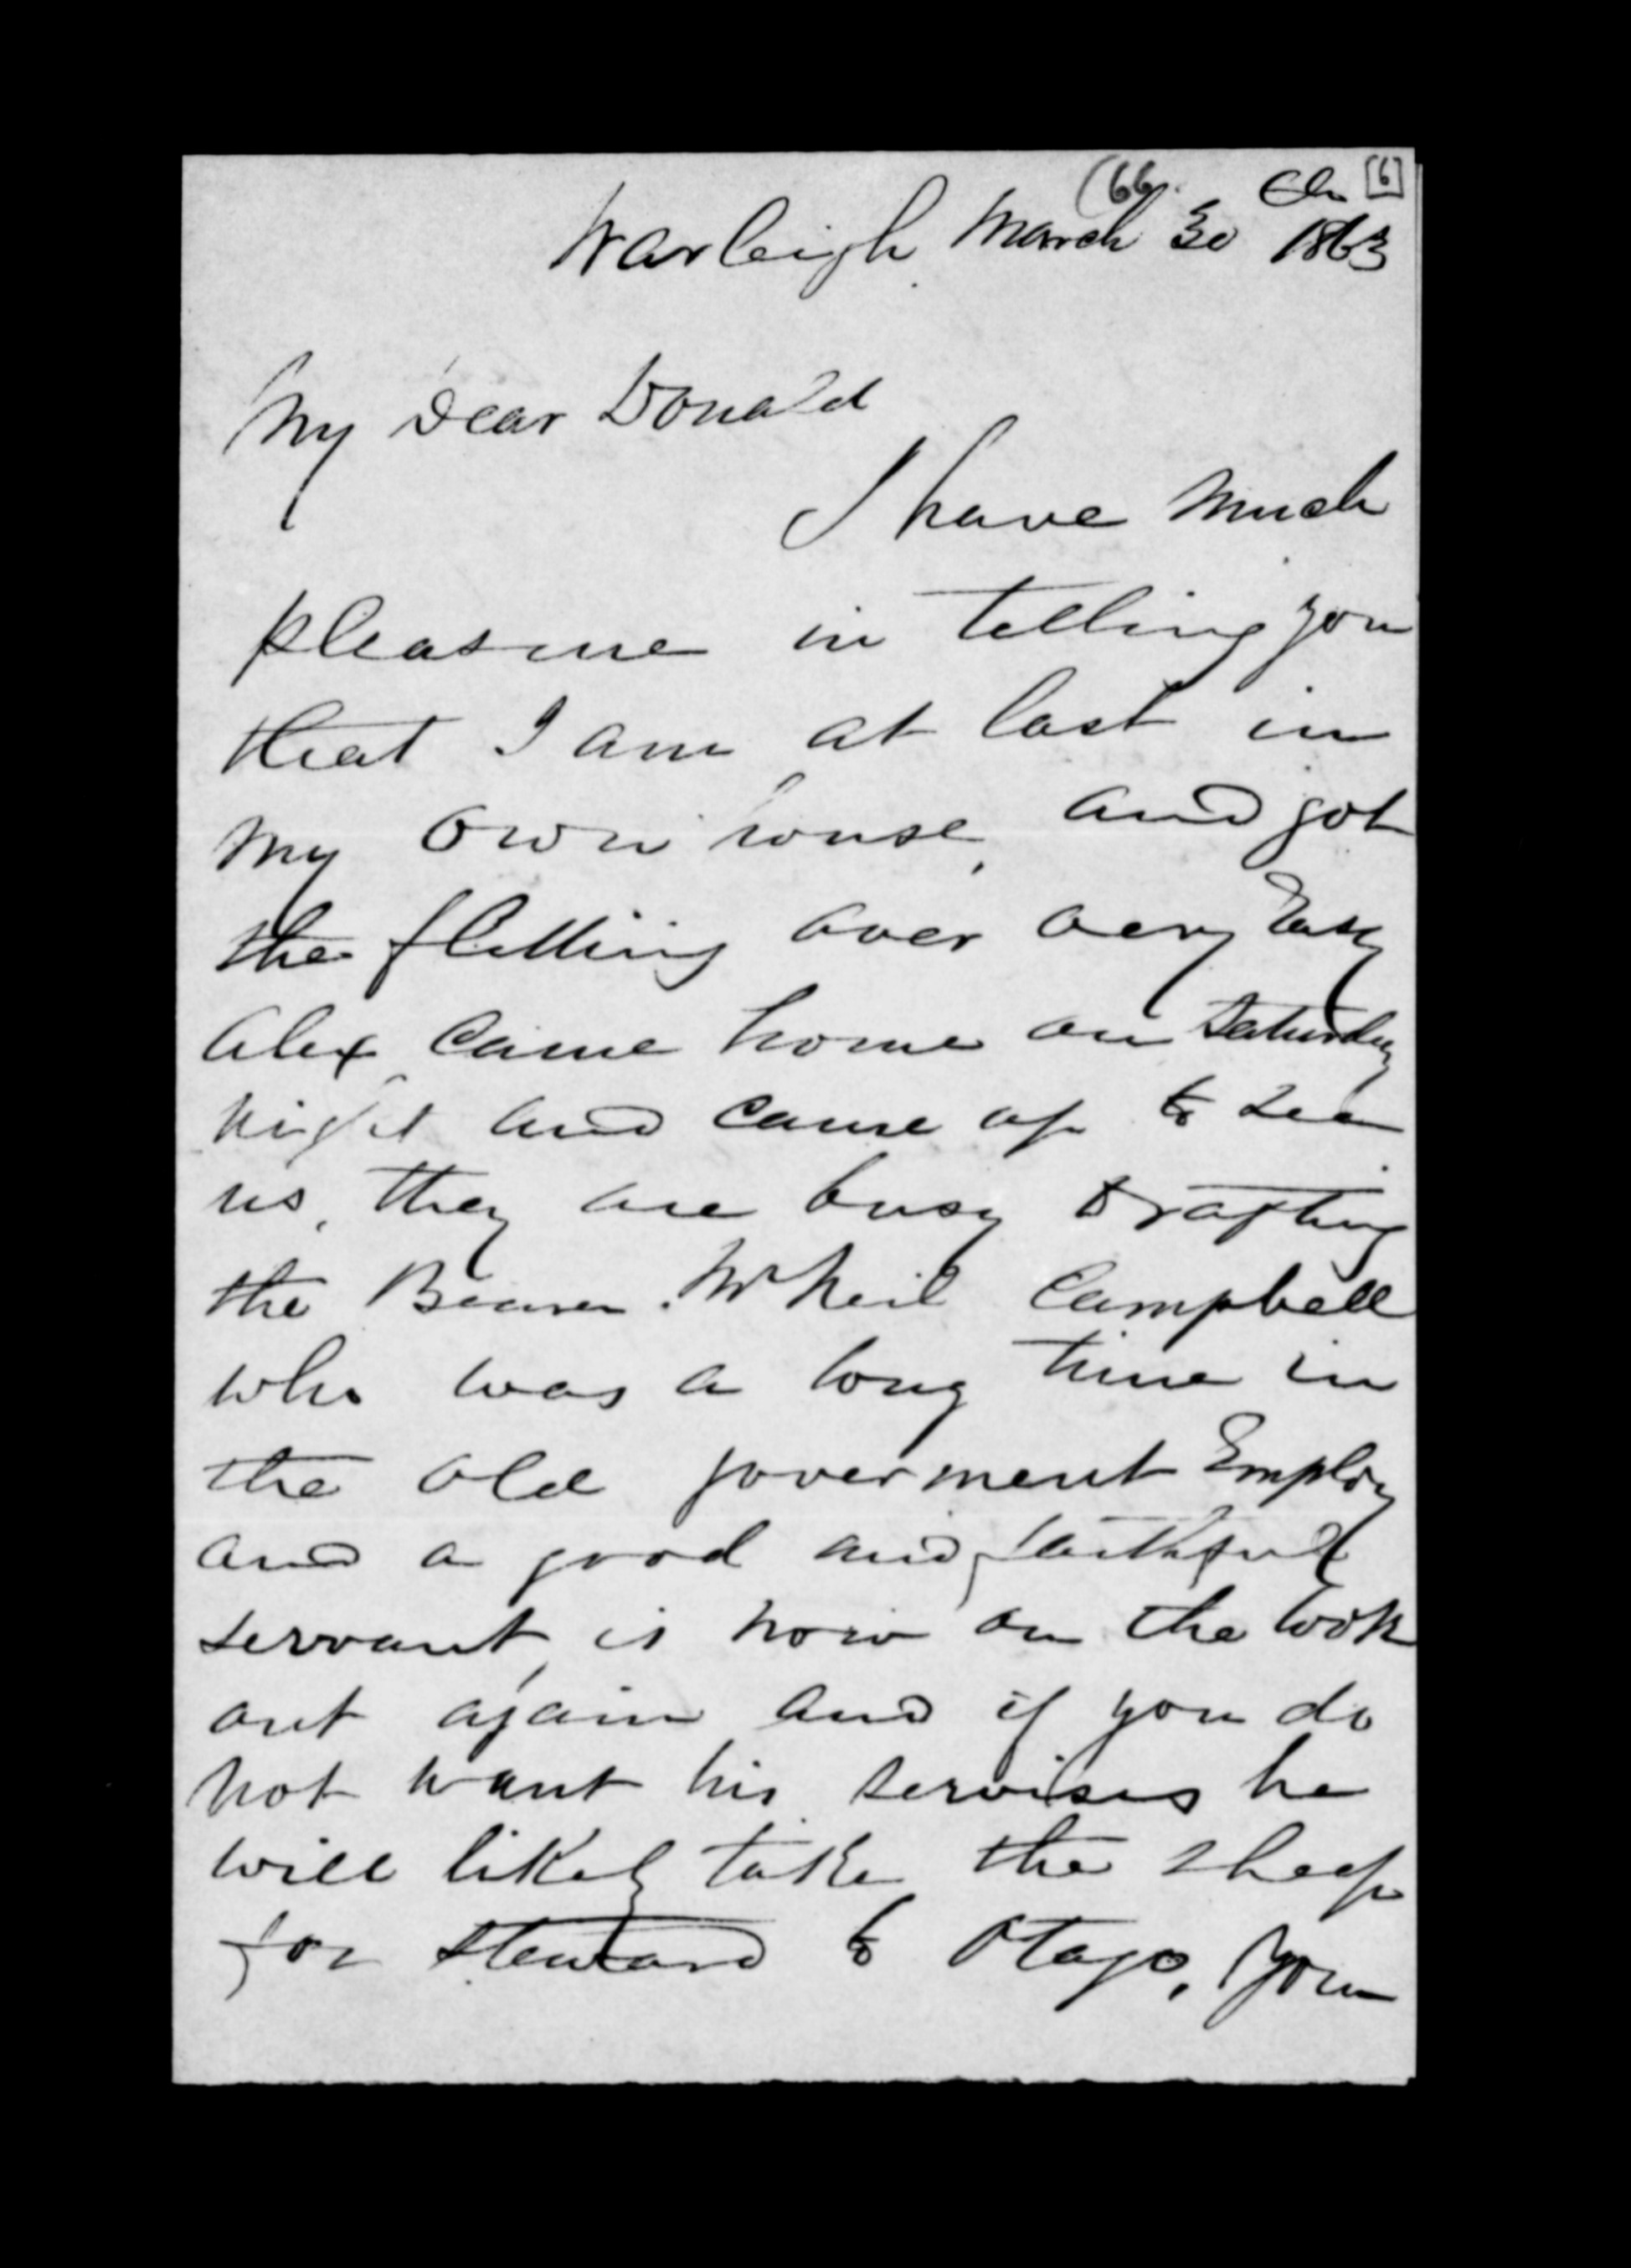 (66. [6]
Warleigh March 30 1863
My Dear Donald
I have much
pleasure in telling you
that I am at last in
my own house, and got
the flitting over very Easy
Alex came home on Saturday
night and came up to see
us, they are busy Drafting
the . Mr Neil Campbell
who was a long time in
the old goverment Employ
and a good and faithful
servant, is now on the look
out again and if you do
not want his servises he
will likely take the sheep
for Steward to Otago, you